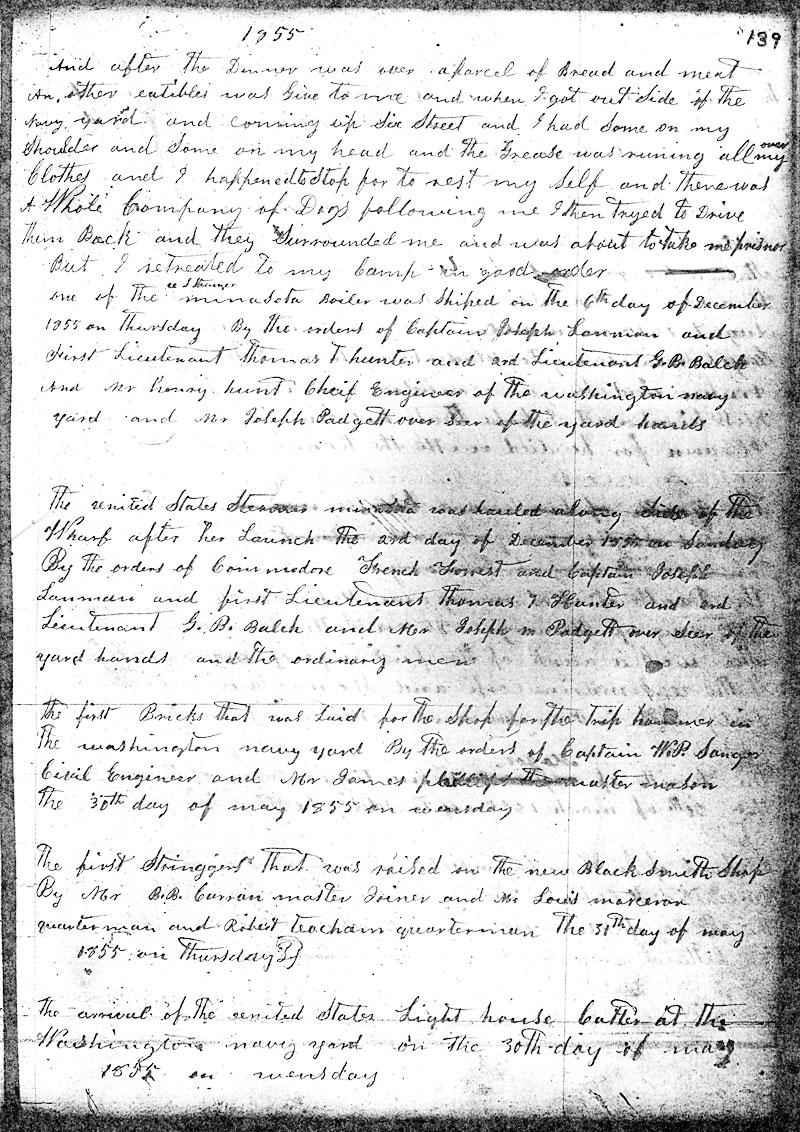 1855
139
And after the Dinner was over a parcel of Bread and meat
An, other eatibles was Give to me and when I got out Side of the
Navy yard and coming up Six Street and I had Some on my
Shoulder and Some on my head and the Grease was runing all over my
Clothes and I happened to Stop for to rest my Self and there was
A Whole Company of Dogs following me I then tryed to Drive
them Back and they Surrounded me and was about to take me prisnor
But I retreated to my Camp in good order
one of the minasota Boiler was Shiped on the 6th day of December
1855 on Thursday By the orders of Captain Joseph Lanman and
First Lieutenant Thomas T hunter and 2rd Lieutenant G.B. Balch
And Mr henry hunt Cheif Engineer of the washington navy
yard and Mr Joseph Padgett over Seer of the yard hands
The united States Steamer was hauled along Side of the
Wharf after her Launch the 2rd day of December 1855 on Sunday
By the orders of Commodore French Forrest and Captain Joseph
Lanman and first Lieutenant Thomas T Hunter and 2rd
Lieutenant G.B. Balch and Mr Joseph m Padgett over Seer of the
yard hands and the ordinary men
the first Bricks that was Laid for the Shop for the trip hammer in
the washington navy yard By the orders of Captain W.P. Sanger
Civil Engineer and Mr James the master mason
the 30th day of may 1855 on wensday
the first Stringgers that was raised on the new Black Smith Shop
By Mr B.B. Curran master Joiner and Mr Louis marceron
quarterman and Robert teacham quarterman the 31th day of may
1855 on Thursday
the arrival of the united States Light house Cutter at the
Washington navy yard on the 30th day of may
1855 on wensday